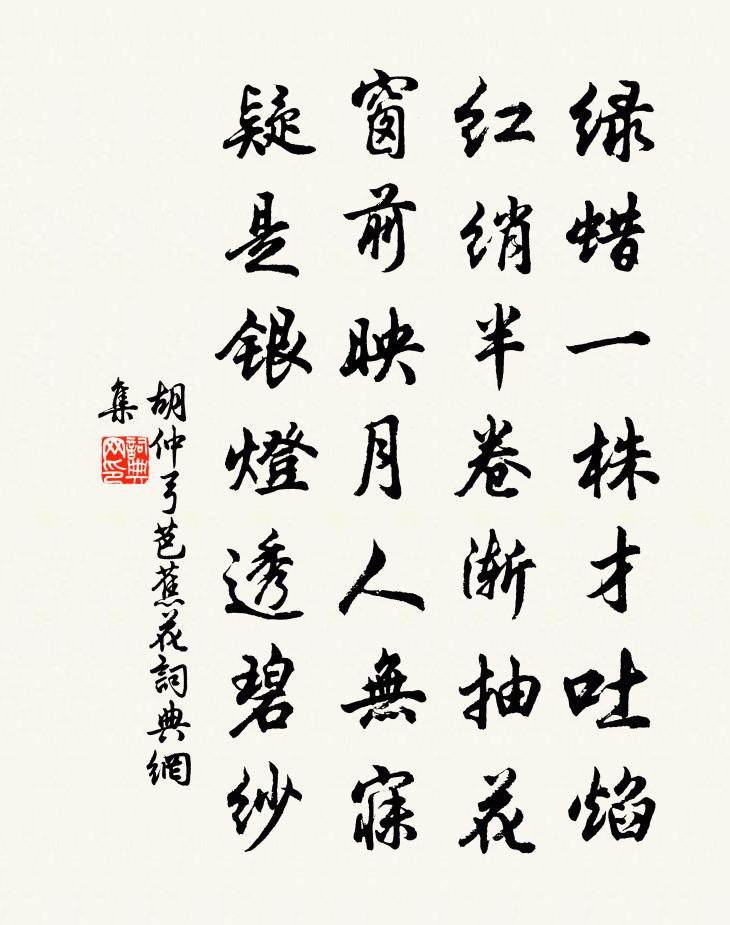 绿蜡一株才吐焰
红绡半卷渐抽花
窗前映月人無寐
疑是銀燈透碧纱
胡仲弓芭蕉花詞典網
集
詞典
网印